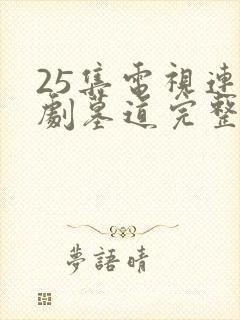 25集電視連
劇墓道完整
夢語晴